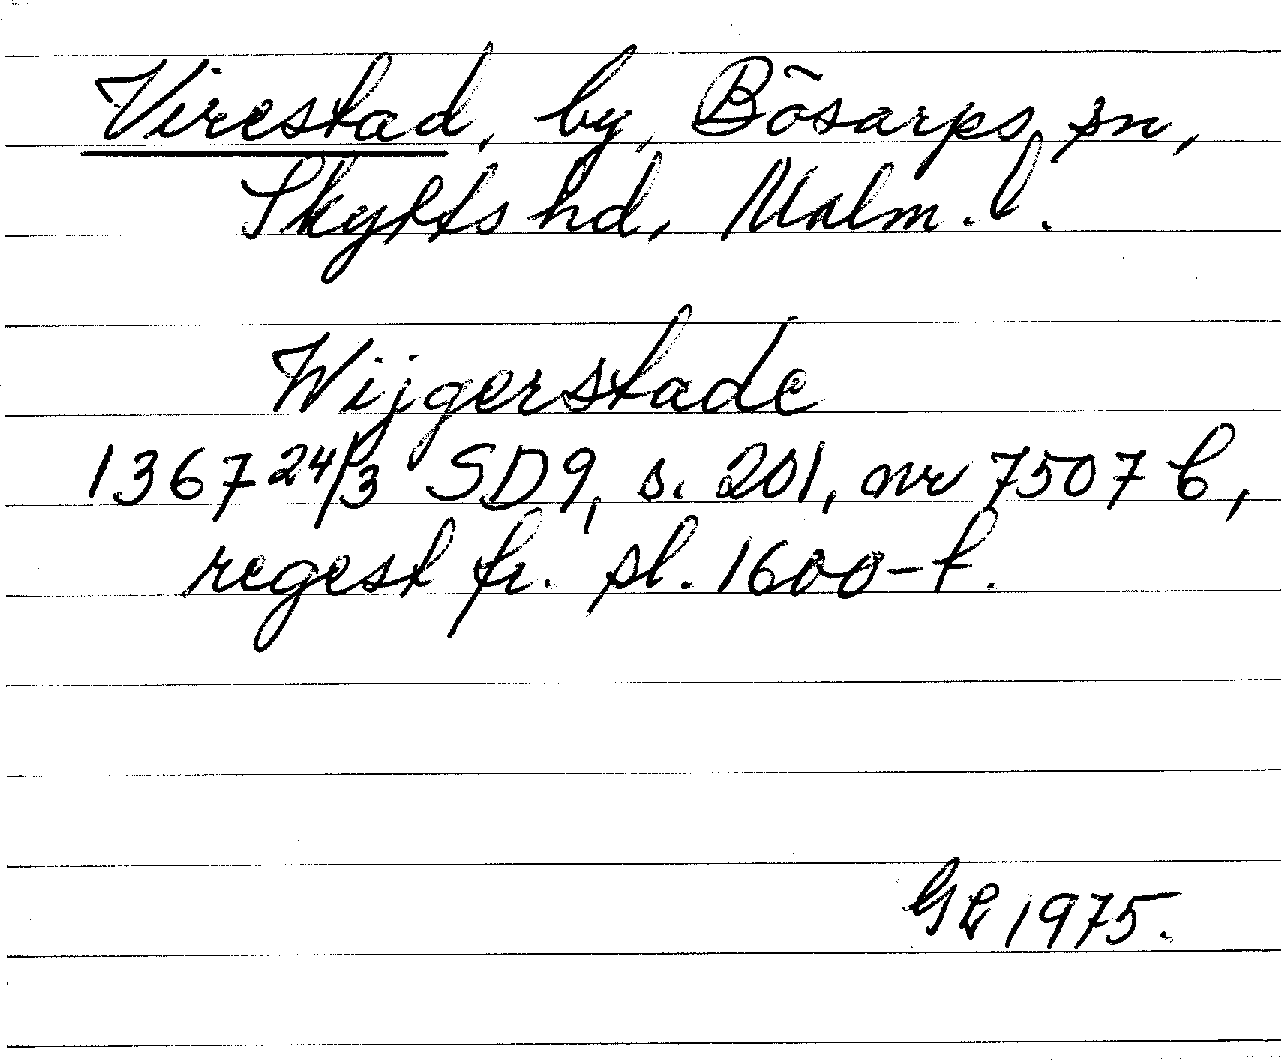 Virestad, by, Bösarps sn,
Skytts hd, Malm. l.
Wijgerstade
1367 24/3 SD9, s. 201, nr 7507 b,
regest fr. sl. 1600-t.
GB 1975.